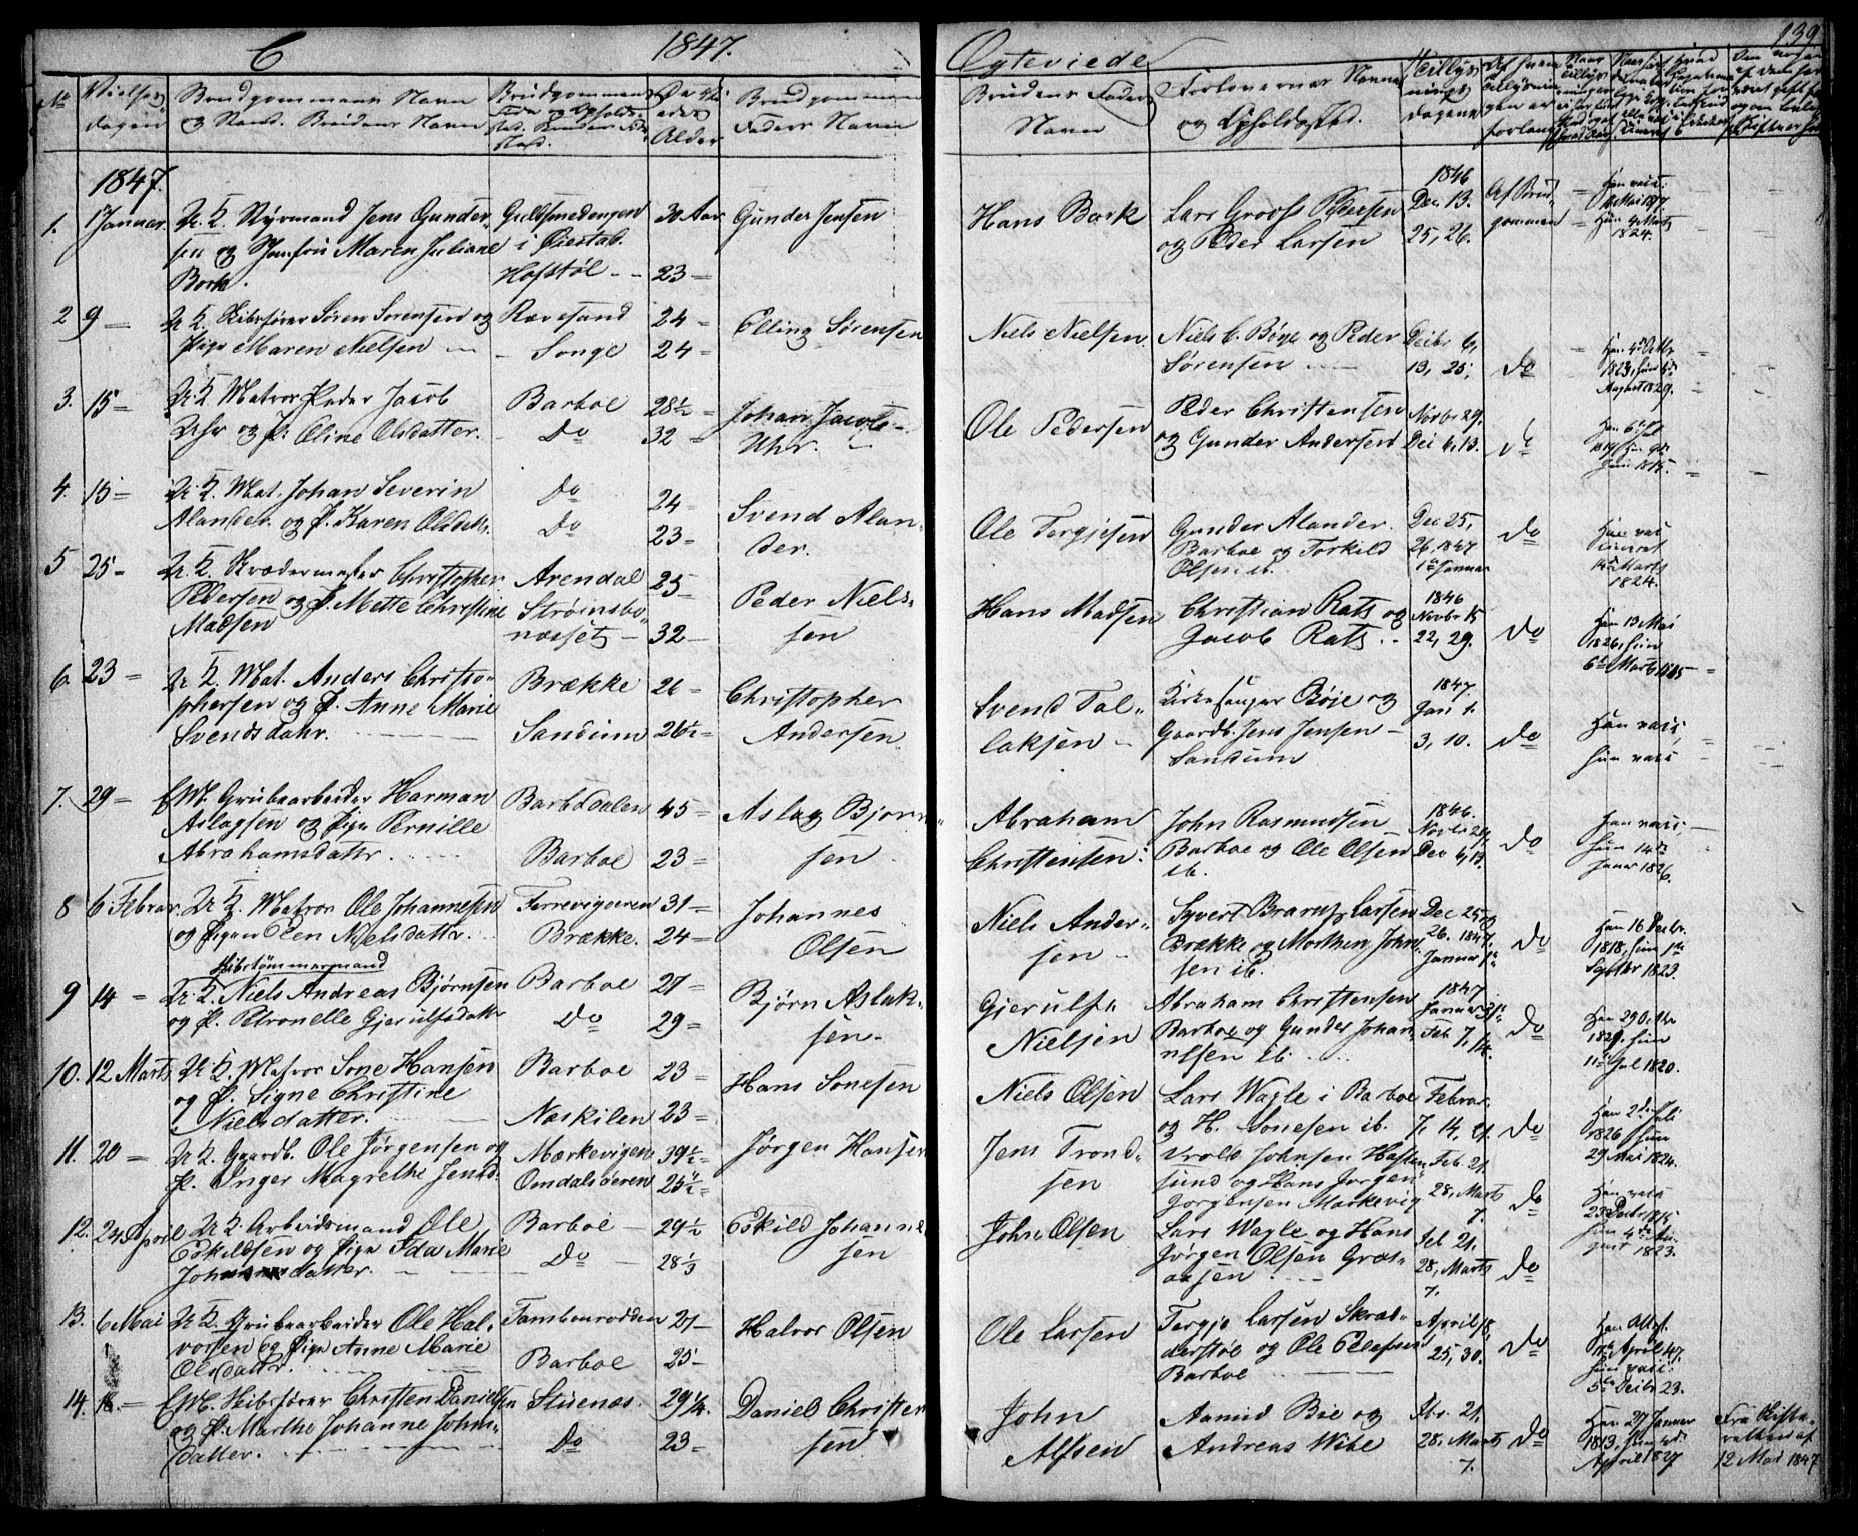 C 1847. Ægteviede 139
No
Vielses
dagen
Brudgommens Navn
og Stand. Brudens Navn
Alder
Brudgommens
Faders Navn
Brudens Faders
Navn
Forlovernes Navne
og Opholdssted.
1847.
1. 1 Januar. U. K. Styrmand Jens Gunder-
sen og Jomfru Maren Juliane
Bork.
Guldsmedengen
i Øiestad.
Hofstøl
30 Aar
23
Gunder Jensen
Hans Bork
Lars Groofs Pedersen
og Peder Larsen
1846
Dec. 13.
25, 26.
Af Brud
gommen
1824.
2 9 U. K. Skibsfører Søren Sørensen og
Pige Maren Nielsen
Ravesand
Songe
24
24
Elling Sørensen
Niels Nielsen
Niels C. Bøye og Peder
Sørensen
Decbr 6,
13, 25,
Do
3. 15 U. K. Matros Peder Jacob
Uhr og P. Oline Olsdatter.
Barboe
Do
28½
32
Johan Jacob
Uhr.
Ole Pedersen
Peder Christensen
og Gunder Andersen
Novbr 29,
Dec 6, 13.
Do
4. 15 U. K. Mat. Johan Severin
Alander og P. Karen Olsdatr.
Do
Do
24
23
Svend Alan-
der.
Ole Tergjesen
Gunder Alander.
Barboe og Torkild
Olsen ib.
Dec 25,
26, 1847
1 Januar
Do
1824.
5 25 U. K. Skrædermester Christopher
Pedersen og P. Mette Christine
Madsen
Arendal
Strømsbo-
næsset
25
32
Peder Niel-
sen
Hans Madsen
Christian Rats og
Jacob Rats
1846
Novbr 15
22, 29.
Do
Han 13 Mai
1826, hun
6. 23 U. K. Mat. Anders Christo-
phersen og P. Anne Marie
Svendsdatr.
Brække
Sandum
26
26½
Christopher
Andersen
Svend Tal-
laksen
Kirkesanger Bøie og
Gaardb. Jens Jensen
Sandum
1847.
Jan 1.
3, 10.
Do
Han vacc:
hun vacc:
7. 29 EM. Grubearbeider Harman
Aslagsen og Pige Pernille
Abrahamsdattr
Barbodalen
Barboe
45
23
Aslag Bjørn-
sen
Abraham
Christensen
John Rasmundsen
Barboe og Ole Olsen
ib.
1846.
Novbr 29,
Dec 6, 13.
Do
Han vacc,
hun 14de
Januar 1826.
8 6 Februar. U. K. Matros Ole Johannesen
og Pigen Elen Nielsdattr.
Brække.
31
24
Johannes
Olsen
Niels Ander-
sen
Syvert Brarup Larsen
Brække og Morthen John-
sen ib.
Dec 25 og
26. 1847,
Januar 1ste
Do
Han 16 Decbr.
1818, hun 1ste
Septbr 1823.
Skibstømmermand
9 14 U. K. Niels Andreas Bjørnsen
og P. Petronelle Gjerulfsdattr
Barboe
Do
27
29
Bjørn Aslak-
sen
Gjerulf
Nielsen
Abraham Christensen
Barboe og Gunder Johan-
nesen ib.
1847
Januar 31te
Feb 7, 14.
Do
Han 29 Octbr
1829. hun
11te Jul 1820.
10. 12 Marts U. K. Matros Sone Hansen
og P. Signe Christine
Nielsdatter.
Barboe
Naskilen
23
23
Hans Sonesen
Niels Olsen
Lars Wagle i Barboe
og H. Sonesen ib.
Februar.
7, 14, 21.
Do
Han 2den Juli
1826 hun
29 Mai 1824.
11. 20 U. K. Gaardb. Ole Jørgensen og
P. Inger Magrethe Jensd.
Mærkevigen
Omdalsøeren
39½
25½
Jørgen Hansen
Jens Trond-
sen
Wrold Johnsen Hasten-
sund og Hans Jørgen
Jørgensen Markevig
Feb. 21.
28, Marts
7.
Do
Han vacc
1823.
12. 24 April U. K. Arbeidsmand Ole
Eskildsen og Pige Ida Marie
Johannesdatter.
Barboe
Do
29½
28⅓
Eskild Johanne-
sen
John Olsen
Lars Wagle og Hans
Jørgen Olsen Græs-
aasen
Feb 21.
28, Marts
7.
Do
13. 6 Mai U. K. Grubearbeider Ole Hal-
vorsen og Pige Anne Marie
Olsdatter.
Tambourodden
Barboe
27
25
Halvor Olsen
Ole Larsen
Tergje Larsen Skræd-
derstøl og Ole Ellefsen
Barboe
April 18,
25, 30.
Do
Han Attest.
April 47,
hun vacc:
5te Decbr 23.
14. 18. EM. Skibsfører Christen Danielsen
og P. Marthe Johanne John-
datter.
Stuenæs.
Do
29¼.
23
Daniel Christen
sen
John
Alfsen
Aamud Bie og
Andreas Wibe
Feb. 21.
28, Marts
7.
Do
Han 27 Januar
1813, hun 4de
April 1827
Fra Skifte-
retten af
12 Mai 1847